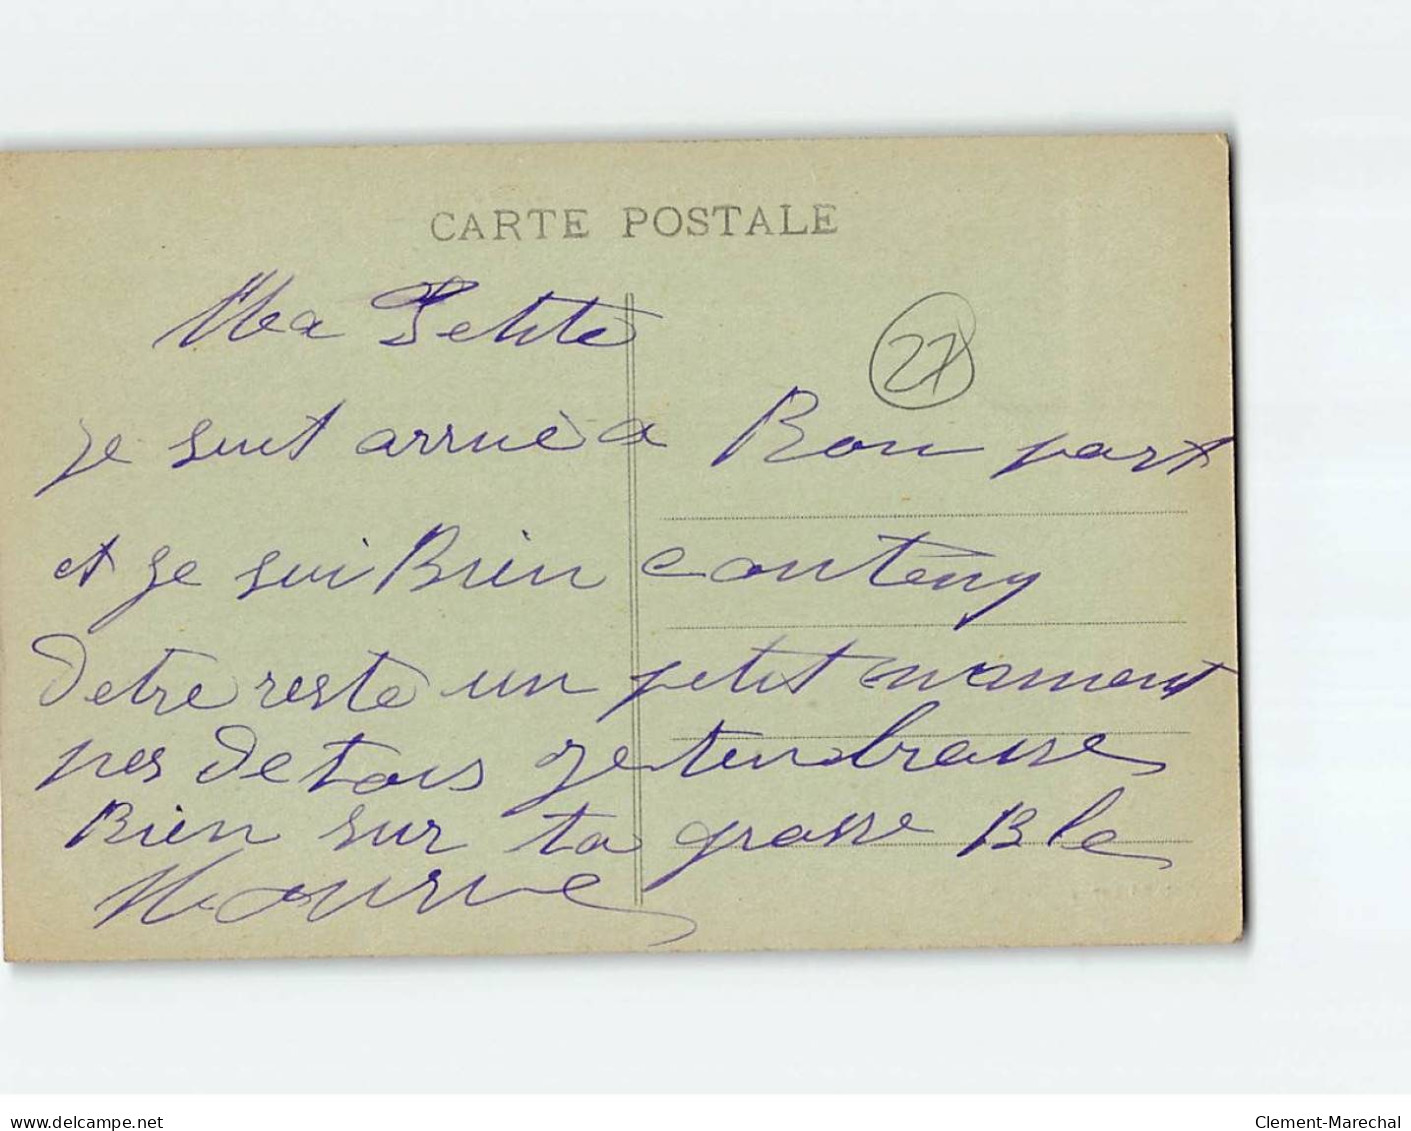 CARTE POSTALE
Ma Petite
27
je suit arrué a Bon part
et je sui Bien conteny
detre reste un petit moment
pres de tois je tenbrasse
Bien sur ta grosse B
www.delcampe.net
Clement-Marechal